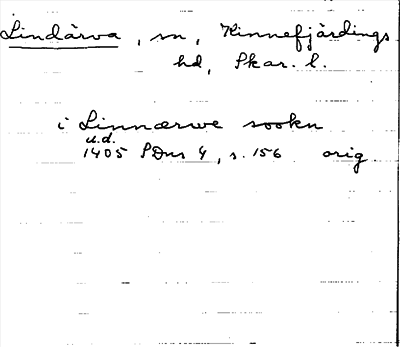 Lindärva, sn, Kinnefjärdings
hd, Skar. l.
i Linnærwe sookn
u.d.
1405 SDns 4, s. 156 orig